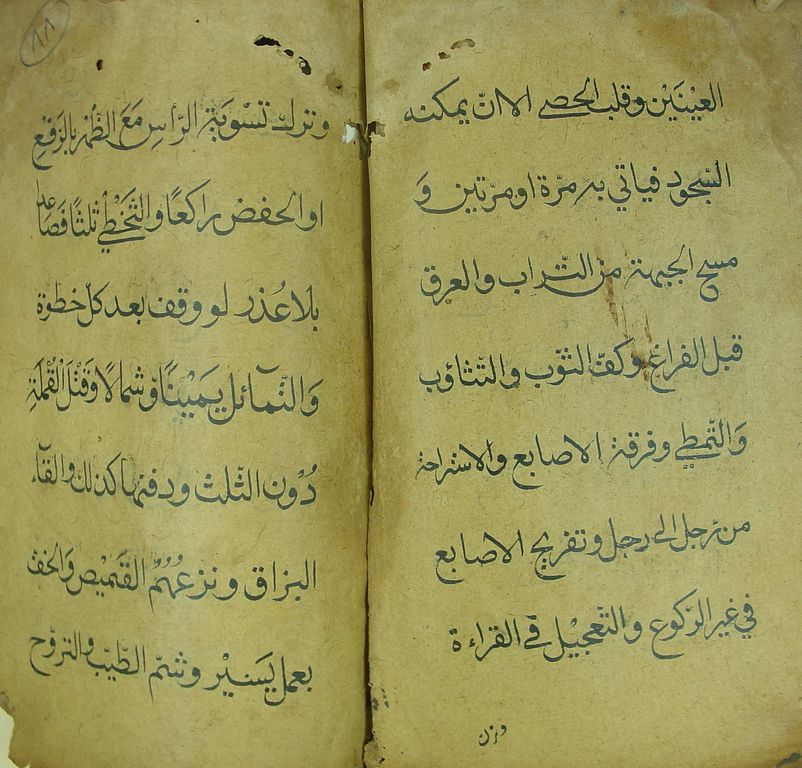 العينين وقلب الحصى الا ان يمكنه
السّجود فياتي به مرّة او مرّتين وَ
مسح الجبهة من التّراب والعرق
قبل الفراغ وكفّ الثّوب والتّثاؤب
وَالتّمطي وفرقة الاصابع والاستراحة
من رّجل الى رجل وتفريج الاصابع
في غير الرّكوع والتّعجيل في القراءة
وترك
وترك تسْويَة الرّاسِ مَعَ الظّهْر بالرّفعِ
او الخفض راكعًا والتّخطّي ثلثًا فصَاعدا
بلا عُذر لو وقف بعد كل خطوة
وَالتّمآئل يَمِيْنًا وّشمالًا وَقَتْلَ القُمْلَةِ
دُوْن الثّلث ودفنها كذلك والقآء
البزاق ونزعهُمُ القَمِيْص وَالخفّ
بعمل يَسيْر وشمّ الطّيْب والتروّح
٨٨